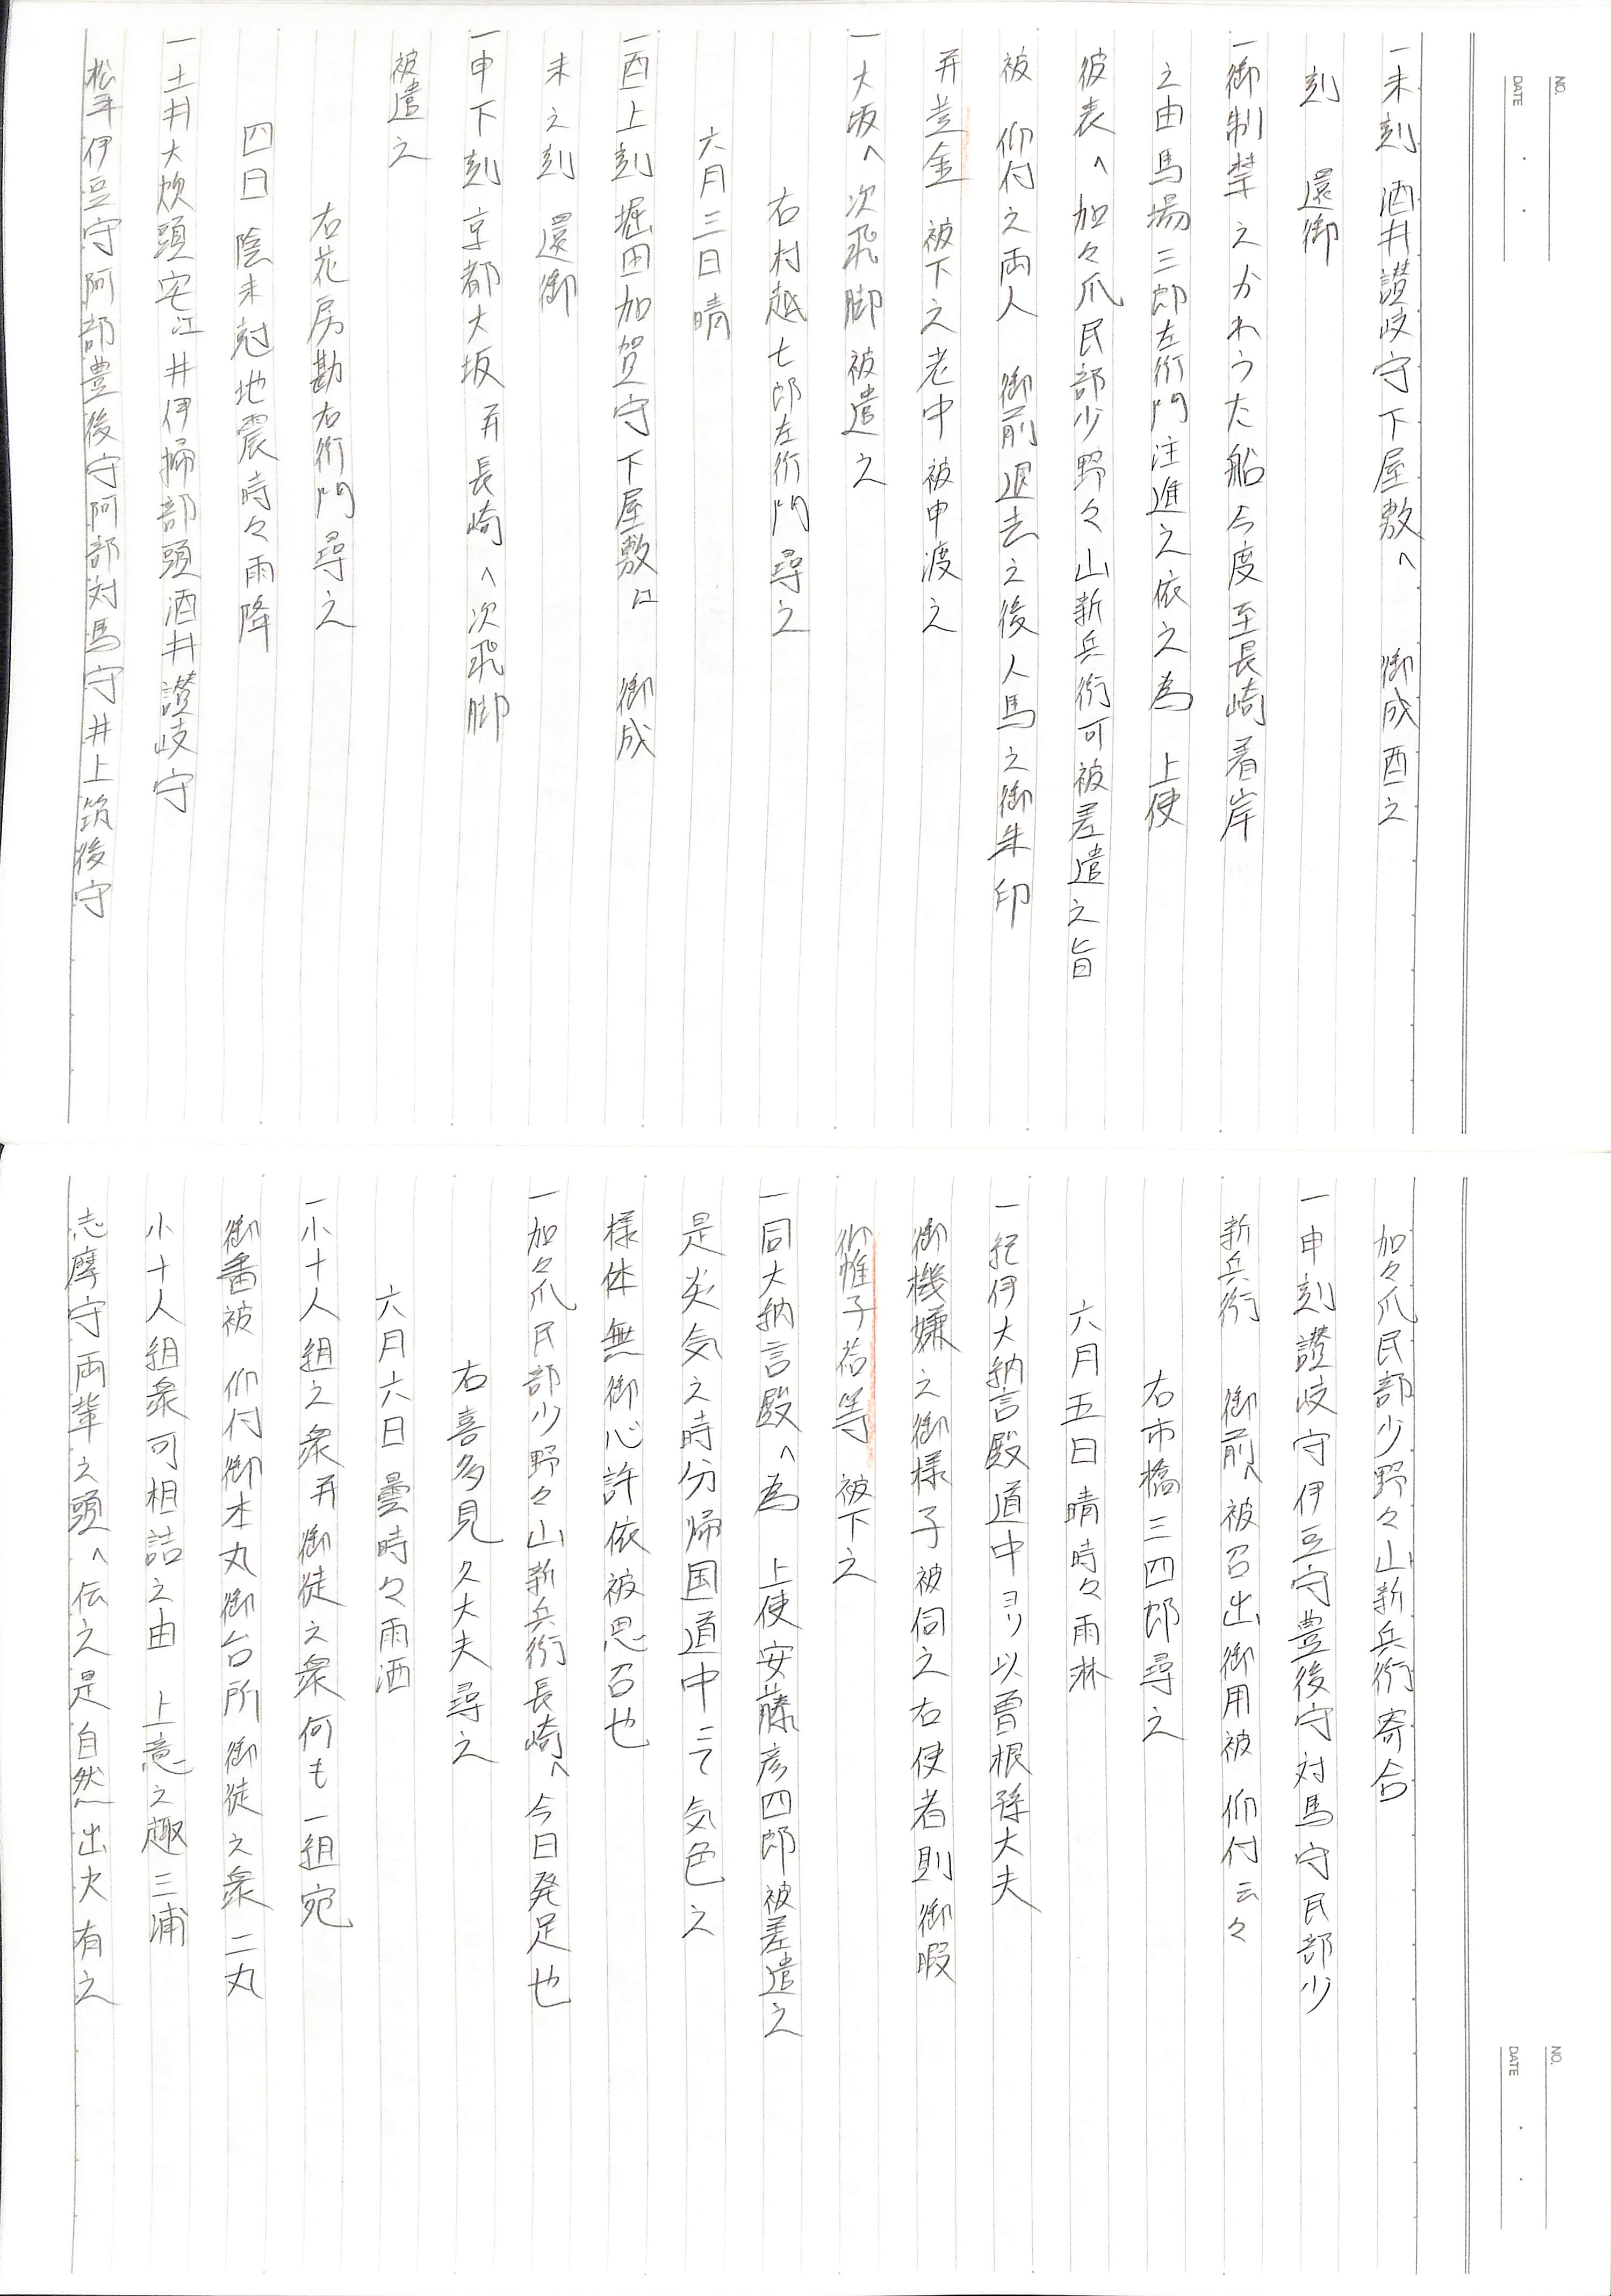 NO.
DATE
一未刻 酒井讃岐守下屋敷へ 御成酉之
刻 還御
一御制禁之かれうた船今度至長崎着岸
之由馬場三郎左衛門注進之依之為 上使
彼表へ加々爪民部少野々山新兵衛可被差遣之旨
被 仰付之両人 御前退去之後人馬之御朱印
并差金 被下之老中被申渡之
一大坂へ次飛脚被遣之
右村越七郎左衛門尋之
六月三日晴
一酉上刻堀田加賀守下屋敷江 御成
未之刻 還御
一申下刻京都大坂并長崎へ次飛脚
被遣之
右花房勘右衛門尋之
四日陰未尅地震時々雨降
一土井大炊頭宅江井伊掃部頭酒井讃岐守
松平伊豆守阿部豊後守阿部対馬守井上筑後守
NO.
DATE
加々爪民部少野々山新兵衛寄合
一申刻讃岐守伊豆守豊後守対馬守民部少
新兵衛 御前へ被召出御用被 仰付云々
右市橋三四郎尋之
六月五日晴時々雨淋
一紀伊大納言殿道中ヨリ以曽根孫大夫
御機嫌之御様子被伺之右使者則御暇
御帷子若等 被下之
一同大納言殿へ為 上使安藤彦四郎被差遣之
是炎気之時分帰国道中ニて気色之
様体無御心許依被思召也
一加々爪民部少野々山新兵衛長崎へ今日発足也
右喜多見久大夫尋之
六月六日曇時々雨洒
一小十人組之衆并御徒之衆何も一組宛
御番被 仰付御本丸御台所御徒之衆二丸
小十人組衆可相詰之由 上意之趣三浦
志摩守両輩之頭へ伝之是自然出火有之